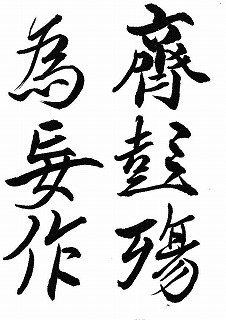 齊彭殤
為妄作